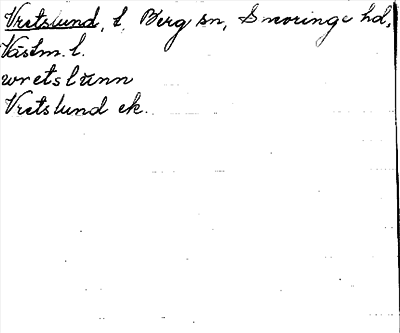 Vretslund, t, Berg sn, Snevringe hd,
Västm. l.
wretslunn
Vretslund ek.